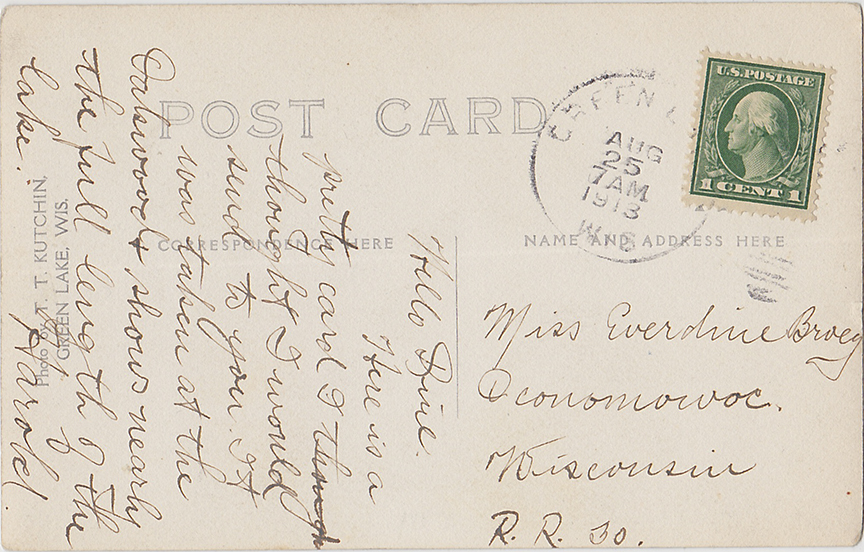 POST CARD
CORRESPONDENCE HERE
NAME AND ADDRESS HERE
GREEN
AUG
25
7 AM
1913
WIS
U.S. POSTAGE
1 CENT 1
Hello Dine.
Here is a
pretty card I
thought I would
send to you. It
was taken at the
Oakwood & shows nearly
the full length of the
lake. Harold.
Photo by T. T. KUTCHIN,
GREEN LAKE, WIS.
Miss Everdine Broeg
Oconomowoc.
Wisconsin
R. R.